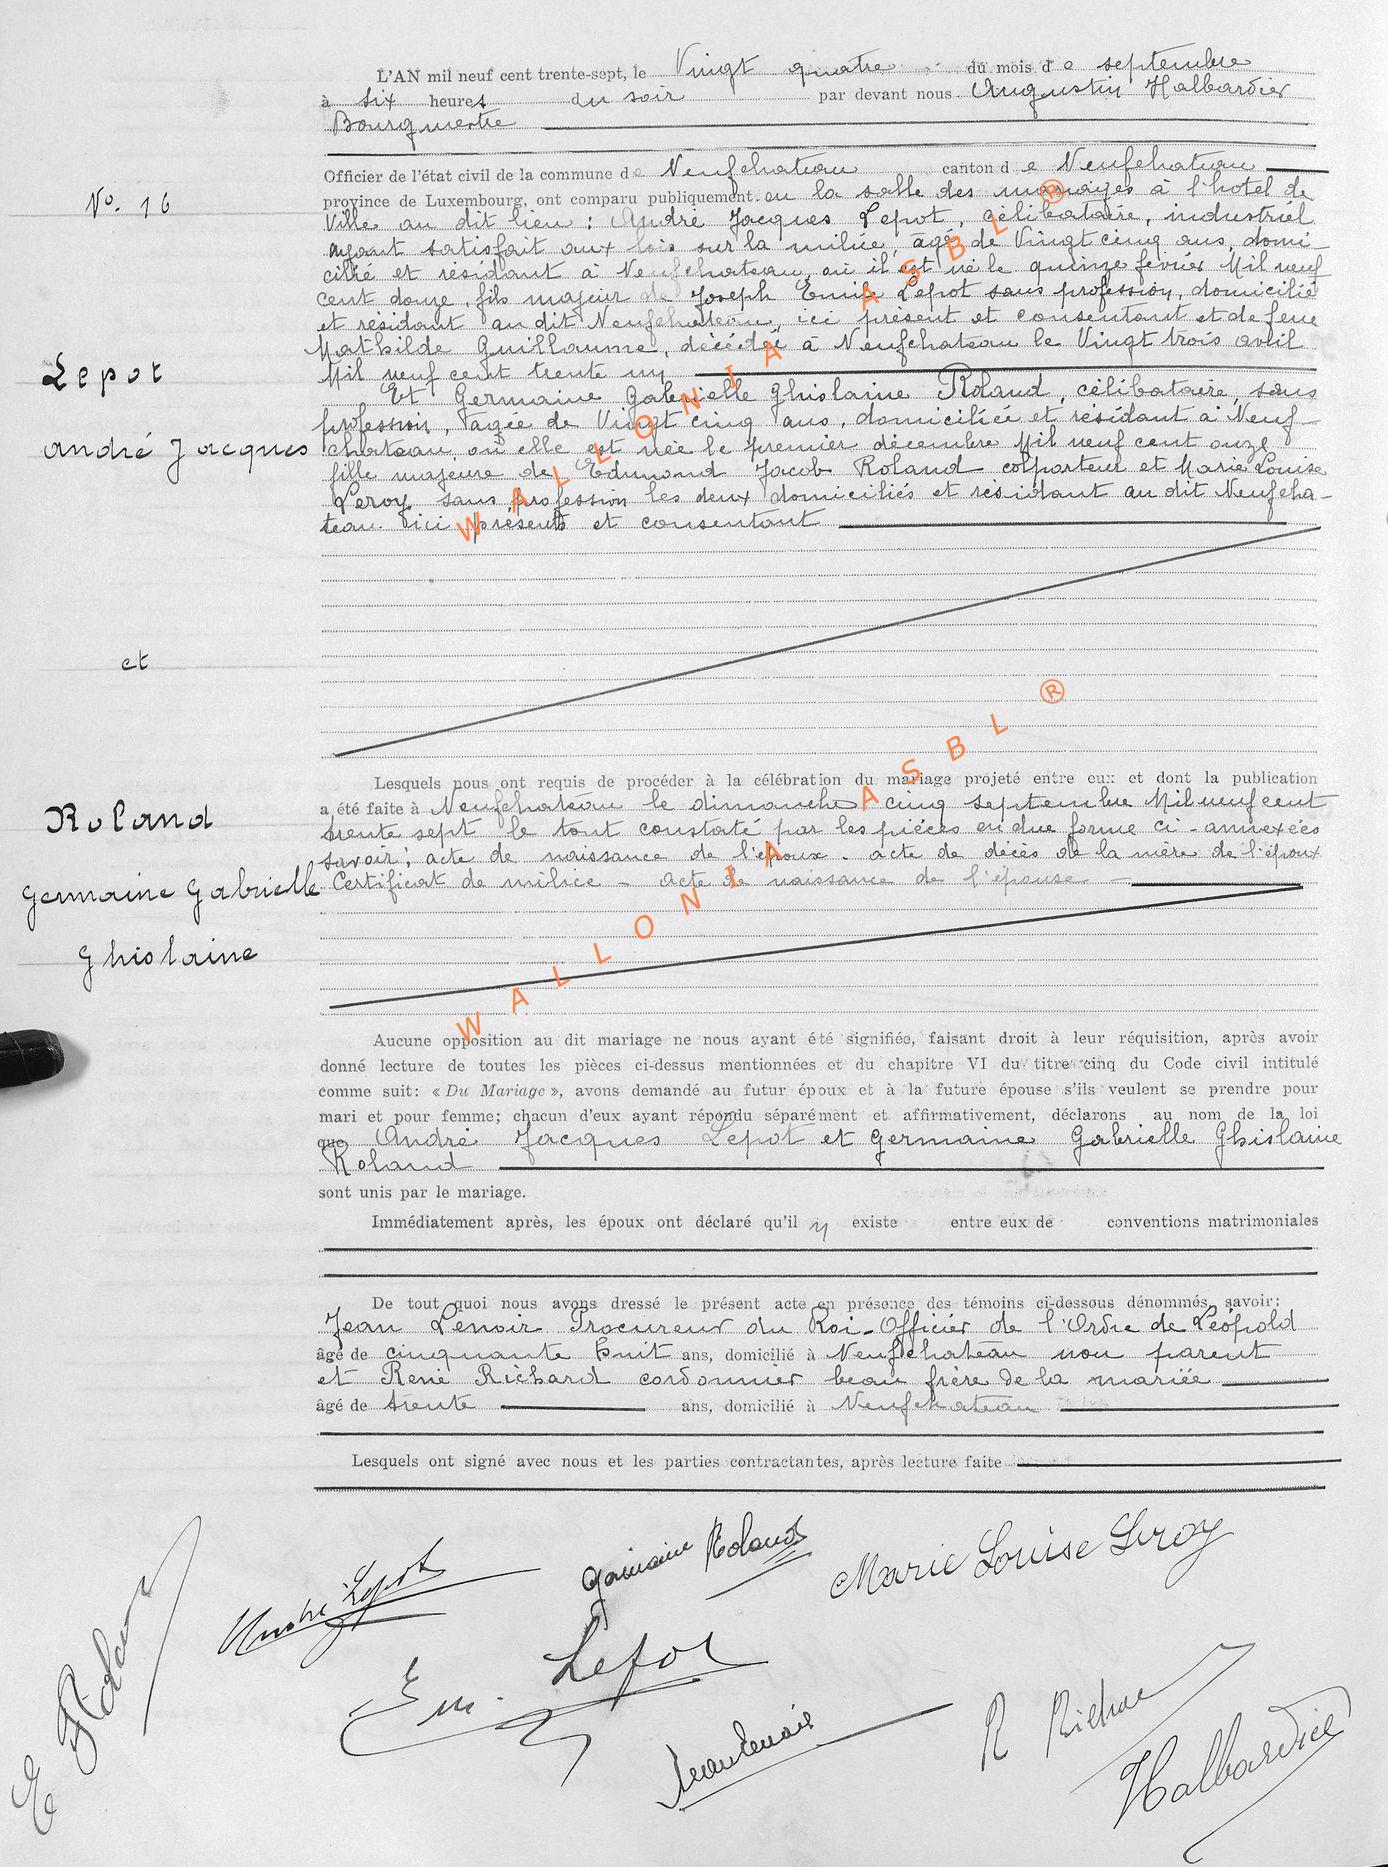 L'AN mil neuf cent trente-sept, le Vingt quatre du mois de septembre
à six heures du soir par devant nous Augustin Halbardier
Bourgmestre
Officier de l'état civil de la commune de Neufchateau canton de Neufchateau
No. 16
province de Luxembourg, ont comparu publiquement en la salle des mariages à l'hotel de
Ville au dit lieu : André Jacques Lepot, célibataire, industriel
ayant satisfait aux lois sur la milice, âgé de Vingt cinq ans, domi-
cilié et résidant à Neufchateau, où il est né le quinze février Mil neuf
cent douze, fils majeur de Joseph Emile Lepot sans profession, domicilié
et résidant au dit Neufchateau, ici présent et consentant et de feue
Mathilde Guillaume, décédée à Neufchateau le Vingt trois avril
Mil neuf cent trente un
Lepot
André Jacques
Et Germaine Gabrielle Ghislaine Roland, célibataire, sans
profession, âgée de Vingt cinq ans, domiciliée et résidant à Neuf-
chateau, où elle est née le premier décembre Mil neuf cent onze
fille majeure de Edmond Jacob Roland colporteur et Marie Louise
Leroy sans profession les deux domiciliés et résidant au dit Neufcha-
teau ici présents et consentant
et
Lesquels nous ont requis de procéder à la célébration du mariage projeté entre eux et dont la publication
a été faite à Neufchateau le dimanche cinq septembre Mil neuf cent
trente sept le tout constaté par les pièces en due forme ci-annexées
savoir: acte de naissance de l'époux - acte de décès de la mère de l'époux
Certificat de milice - acte de naissance de l'épouse -
Roland
Germaine Gabrielle
Ghislaine
Aucune opposition au dit mariage ne nous ayant été signifiée, faisant droit à leur réquisition, après avoir
donné lecture de toutes les pièces ci-dessus mentionnées et du chapitre VI du titre cinq du Code civil intitulé
comme suit: « Du Mariage », avons demandé au futur époux et à la future épouse s'ils veulent se prendre pour
mari et pour femme; chacun d'eux ayant répondu séparément et affirmativement, déclarons au nom de la loi
que André Jacques Lepot et Germaine Gabrielle Ghislaine
Roland
sont unis par le mariage.
Immédiatement après, les époux ont déclaré qu'il y existe entre eux de conventions matrimoniales
De tout quoi nous avons dressé le présent acte en présence des témoins ci-dessous dénommés, savoir:
Jean Lenoir Procureur du Roi - Officier de l'Ordre de Léopold
âgé de cinquante huit ans, domicilié à Neufchateau non parent
et René Richard cordonnier beau frère de la mariée
âgé de trente ans, domicilié à Neufchateau
Lesquels ont signé avec nous et les parties contractantes, après lecture faite
E Roland
André Lepot
Germaine Roland
Marie Louise Leroy
Em. Lepot
Jean Lenoir
R Richard
Halbardier
WALLONIA ASBL ®
WALLONIA ASBL ®